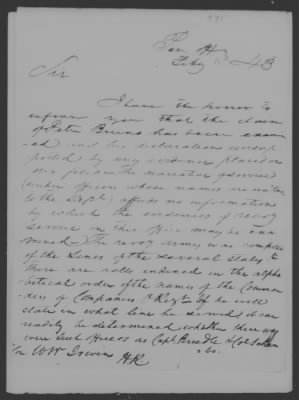 Pen Of
Feby 43
Sir
I have the honor to
inform you that the claim
of Peter has been exam
ed and his declaration unsup
ported by any evidence placed on
our files the narrative of service
(under officers whose names are
to the Dept) affords no information
by which the evidences of revoy
service on this office may be exa
mined. The revoy army was composed
of the Lines of the several states &
there are rolls indexed in the alpha
betical order of the names of the Comman
ders of Companies & Regts If he will
state in what line he served it can
readily be determined whether there was
were such officers as Capt &
Hon Wm Irwin